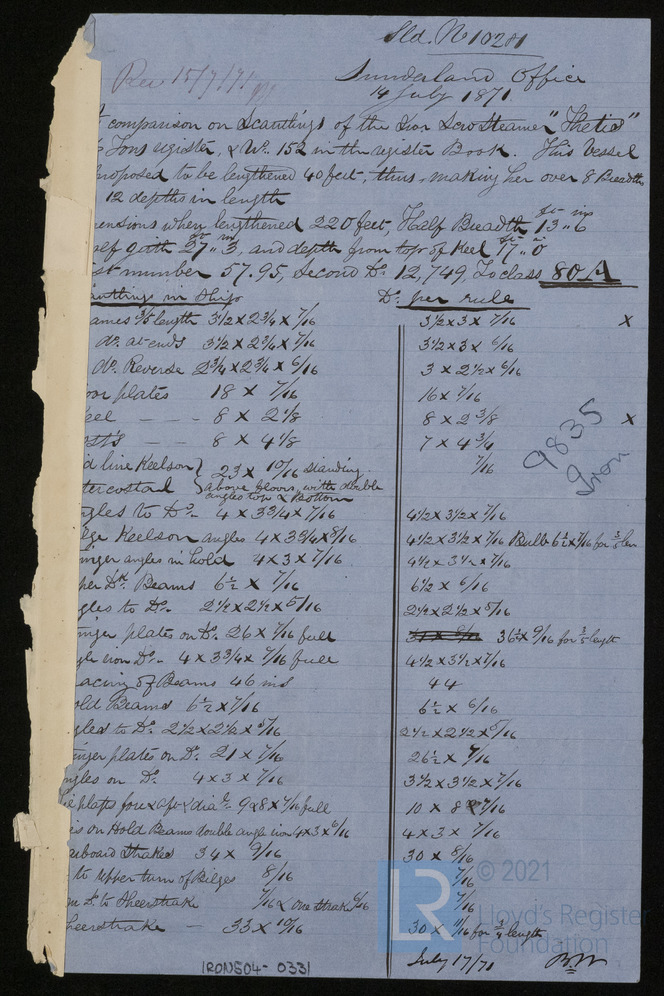 Sld. No 10281
Rec 15/7/71
Sunderland Office
14 July 1871.
comparison on Scantlings of the Iron Screw Steamer "Thetis"
Tons register, & No. 152 in the register Book. This Vessel
proposed to be lengthened 40 feet, thus making her over 8 Breadths
12 depths in length
ensions when lengthened 220 feet, Half Breadth 13 ft 6 ins
elf girth 27 ft 3 in, and depth from top of Keel 17 ft 0 in
st number 57.95, Second Do. 12,749, To class 80 A
antlings in Ship Do. per rule
ames 3/5 length 3 1/2 x 2 3/4 x 7/16 3 1/2 x 3 x 7/16 x
do. at ends 3 1/2 x 2 3/4 x 7/16 3 1/2 x 3 x 6/16
do. Reverse 2 3/4 x 2 3/4 x 6/16 3 x 2 1/2 x 6/16
oor plates 18 x 7/16 16 x 7/16
eel - - - 8 x 2 1/8 8 x 2 3/8 x
osts - - - 8 x 4 1/8 7 x 4 3/4
d line Keelson } 23 x 10/16 standing 7/16
tercostal } above floors, with double
angles top & Bottom
ngles to Do. 4 x 3 3/4 x 7/16 4 1/2 x 3 1/2 x 7/16
lge Keelson angles 4 x 3 3/4 x 8/16 4 1/2 x 3 1/2 x 7/16 Bulb 6 1/2 x 7/16 for 3/5 len
inger angles in hold 4 x 3 x 7/16 4 1/2 x 3 1/2 x 7/16
per Dk. Beams 6 1/2 x 7/16 6 1/2 x 6/16
gles to Do. 2 1/2 x 2 1/2 x 5/16 2 1/2 x 2 1/2 x 5/16
inger plates on Do. 26 x 7/16 full 36 1/2 x 9/16 for 3/5 length
gle iron Do. 4 x 3 3/4 x 7/16 full 4 1/2 x 3 1/2 x 7/16
acing of Beams 46 ins 44
old Beams 6 1/2 x 7/16 6 1/2 x 6/16
gles to Do. 2 1/2 x 2 1/2 x 5/16 2 1/2 x 2 1/2 x 5/16
inger plates on Do. 21 x 7/16 26 1/2 x 7/16
ngles on Do. 4 x 3 x 7/16 3 1/2 x 3 1/2 x 7/16
ie plates fore & aft & dial. 9 & 8 x 7/16 full 10 x 8 x 7/16
is on Hold Beams double angle iron 4 x 3 x 6/16 4 x 3 x 7/16
arboard Strakes 34 x 9/16 30 x 8/16
to Upper turn of Bilges 8/16 7/16
m Do. to Sheerstrake 7/16 & one strake 6/16 7/16
heerstrake - 33 x 10/16 30 x 11/16 for 3/4 length
July 17/71
9835
Iron
IRON504-0331
LR
© 2021
Lloyd's Register
Foundation